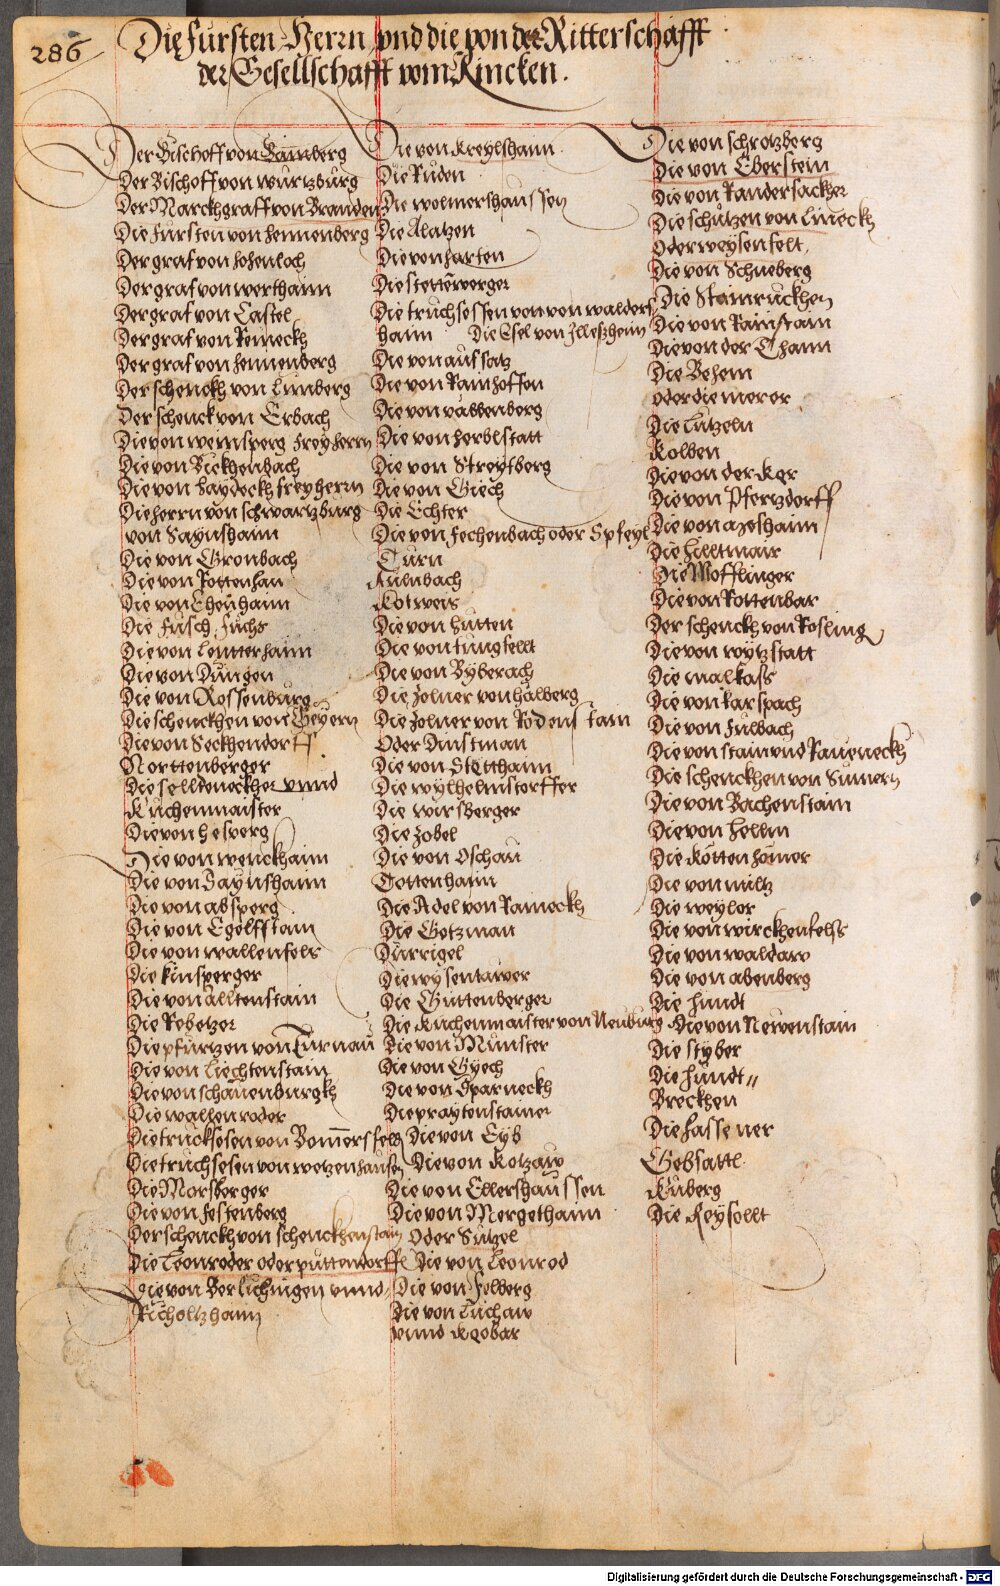 286
Die Fürsten Herrn vnd die von der Ritterschafft
der Gesellschafft vom Rincken.
Der Bischoff von Bamberg
Der Bischoff von würtzburg
Der Marckhgraff von Branden
Die Fürsten von hennenberg
Der graf von hohenloch
Der graf von werthaim
Der graf von Castel
Der graf von Reineckh
Der graf von hennenberg
Der schenckh von Limberg
Der schenck von Erbach
Die von weinsperg freyherrn
Die von Bickhenbach
Die von haydeckh freyherrn
Die herrn von schwartzburg
von Saynshaim
Die von Gronbach
Die von Rottenhan
Die von Ehenhaim
Die Füsch Fuchs
Die von Lentterhaim
Die von Düngen
Die von Rossenburg
Die schenckhen von Geyern
Die von Seckhendorff
Norttenberger
Die selldeneckher vnnd
Kuchenmaister
Die von hesperg
Die von wenckhaim
Die von Saynshaim
Die von absperg
Die von Egolffstain
Die von wallenfels
Die künsperger
Die von alltenstain
Die Rebetzer
Die pfürtzen von Turnau
Die von Liechtenstain
Die von schaüenburgkh
Die wallenroder
Die trucksesen von Bommersfeld
Die truchsesen von wetzenhausen
Die Morsberger
Die von festenberg
Der schenckh von schenckhenstain
Die Leonroder oder püttendorff
Die von Berlichingen vnnd
Richoltzhaim
Die von Kreylshaim
Die Rüden
Die wolmershaussen
Die Alatzen
Die von harten
Die stettēwerger
Die truchsessen von von walders
haim Die Esel von Illeszheim
Die von aufsatz
Die von Ramhoffen
Die von vassenberg
Die von herblstatt
Die von Streytberg
Die von Giech
Die Echter
Die von Fechenbach oder Spfeyl
Turn
Aulnbach
Kotweis
Die von hutten
Die von tüngfellt
Die von Byberach
Die Zolner von halberg
Die Zolner von Rodenstain
Oder Dinstman
Die von Stetthaim
Die wylhelmstorffer
Die wirsberger
Die Zobel
Die von Oschau
Tottenhaim
Die Adel von Raineckh
Die Getzman
Dürrigel
Die wysentawer
Die Güttenberger
Die Kuchenmaister von Neuburg
Die von Münster
Die von Gyech
Die von Sparneckh
Die praytenstainer
Die von Eyb
Die von Kotzaw
Die von Ellershaussen
Die von Mergethaim
Oder Sützel
Die von Leonrod
Die von Felberg
Die von Lüchaw
vnnd
Die von schrotzberg
Die von Eberstein
Die von Randersackher
Die schützen von Lineckh
Oder weysenfelt
Die von Schneberg
Die Stainruckhen
Die von Rainstain
Die von der Thann
Die Behem
oder die merer
Die Lützeln
Kolben
Die von der Ker
Die von Pfertzdorff
Die von azeshaim
Die hilltmair
Die Mofflinger
Die von Rottenbar
Der schenckh von Rosling
Die von wytzstatt
Die malkass
Die von karspach
Die von Fulbach
Die von stain vnd Raueneckh
Die schenckhen von Simern
Die von Bachenstain
Die von hellin
Die Köttenhamer
Die von miltz
Die weyler
Die von wirckhenfelss
Die von waldaw
Die von abenberg
Die hundt
Die von Newenstain
Die styber
Die hündt
Breckhen
Die hassener
Gebsattl
Küberg
Die Reysollt
Digitalisierung gefördert durch die Deutsche Forschungsgemeinschaft - DFG